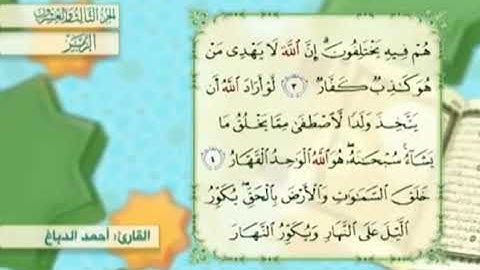 الجزء الثالث والعشرون
الزمر
هُمْ فِيهِ يَخْتَلِفُونَ ۗ إِنَّ اللَّهَ لَا يَهْدِي مَنْ
هُوَ كَاذِبٌ كَفَّارٌ ٣ لَوْ أَرَادَ اللَّهُ أَن
يَتَّخِذَ وَلَدًا لَّاصْطَفَىٰ مِمَّا يَخْلُقُ مَا
يَشَاءُ ۚ سُبْحَانَهُ ۖ هُوَ اللَّهُ الْوَاحِدُ الْقَهَّارُ ٤
خَلَقَ السَّمَاوَاتِ وَالْأَرْضَ بِالْحَقِّ ۖ يُكَوِّرُ
اللَّيْلَ عَلَى النَّهَارِ وَيُكَوِّرُ النَّهَارَ
القارئ: أحمد الدباغ